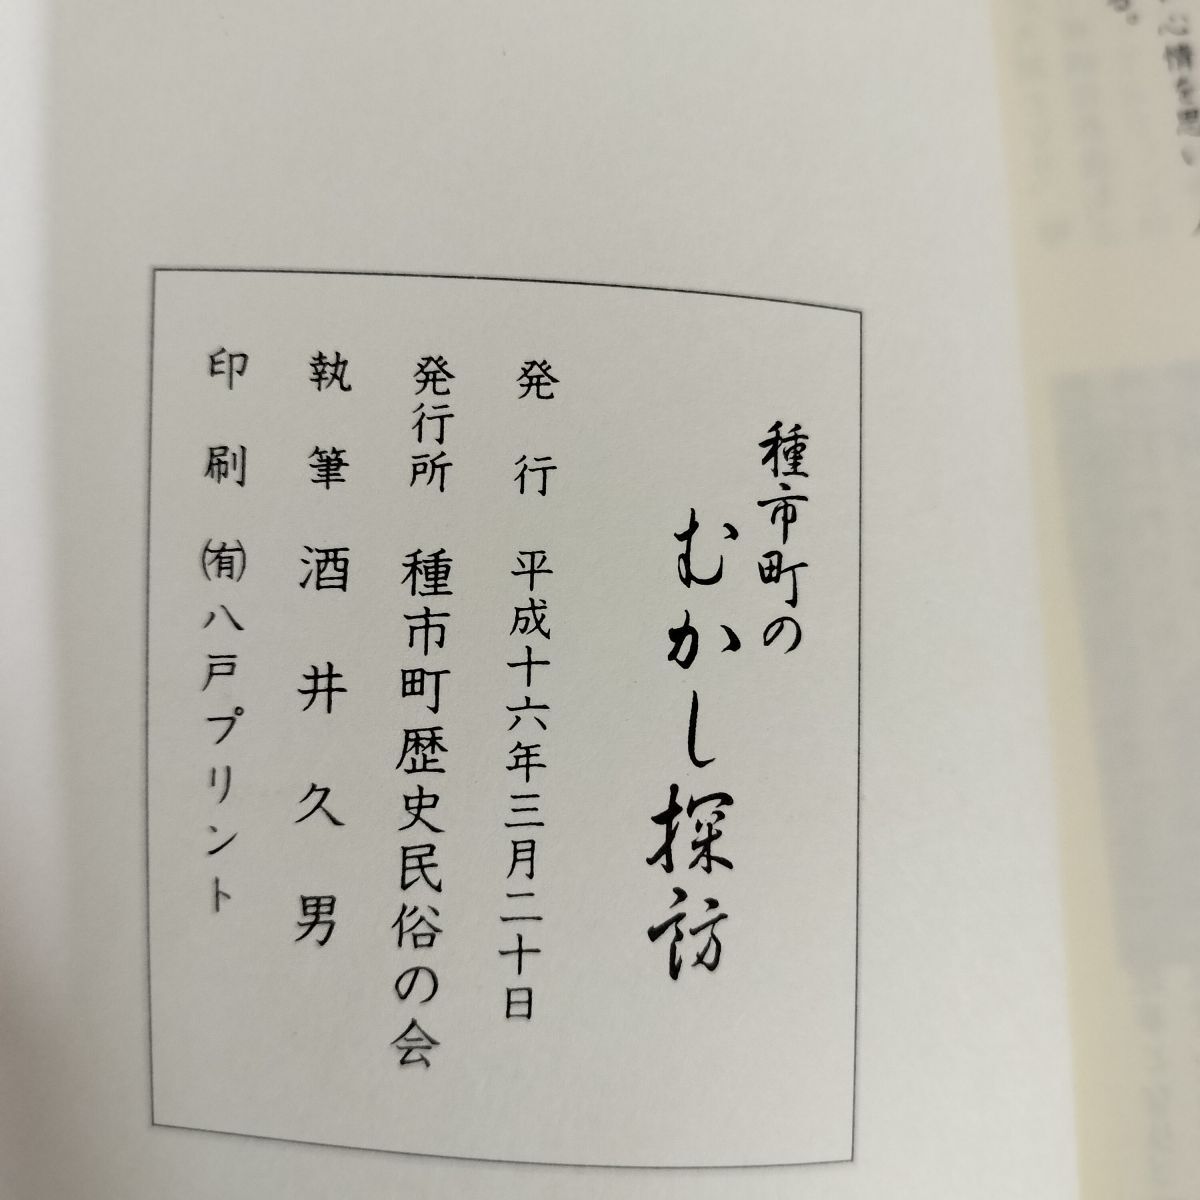 種市町の
むかし探訪
発行 平成十六年三月二十日
発行所 種市町歴史民俗の会
執筆 酒井久男
印刷 ㈲八戸プリント